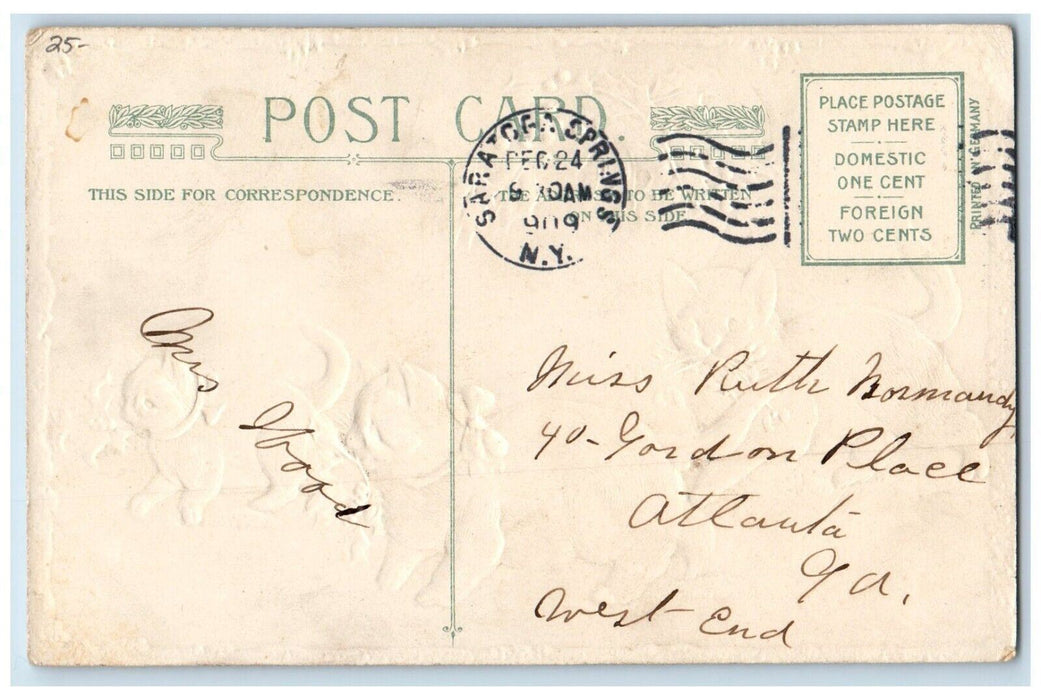 25-
POST CARD.
THIS SIDE FOR CORRESPONDENCE.
THE ADDRESS TO BE WRITTEN
ON THIS SIDE
SARATOGA SPRINGS
DEC 24
8 30AM
1909
N.Y.
PLACE POSTAGE
STAMP HERE
DOMESTIC
ONE CENT
FOREIGN
TWO CENTS
PRINTED IN GERMANY
Mrs
Wood
Miss Ruth Normandy,
40-Gordon Place
Atlanta
Ga.
West End